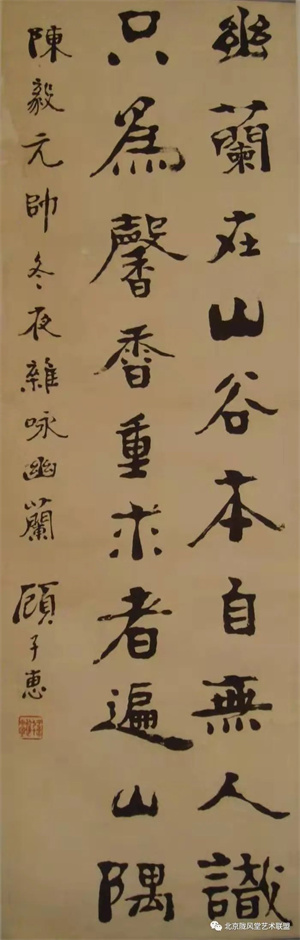 幽蘭在山谷本自無人識
只為馨香重求者遍山隅
陳毅元帥冬夜雜咏幽蘭 顧子惠
北京陇风堂艺术联盟